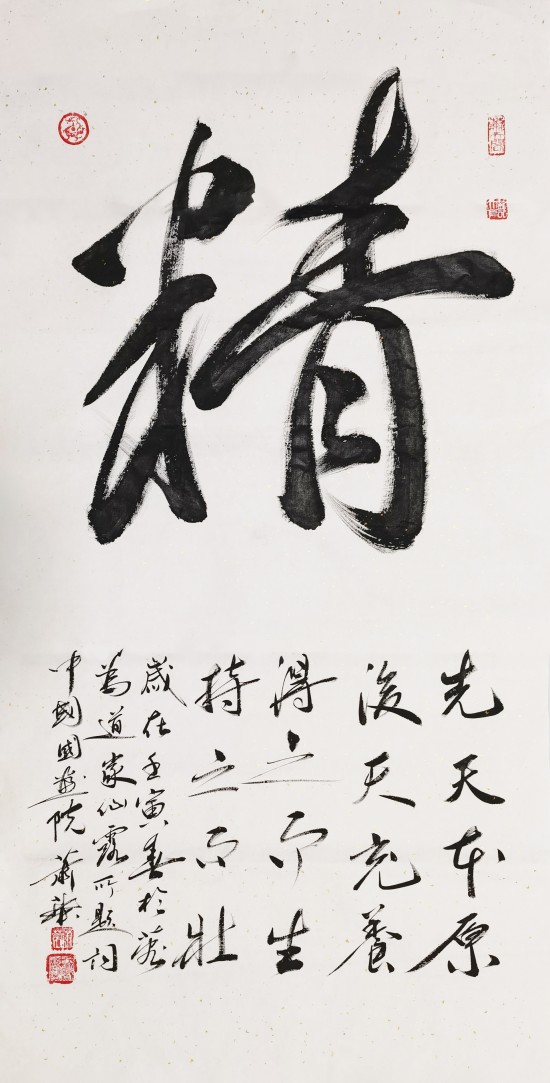 精
先天本原
後天充養
得之而生
持之而壯
歲在壬寅春於
為道家仙露所題詞
中國國畫院蕭